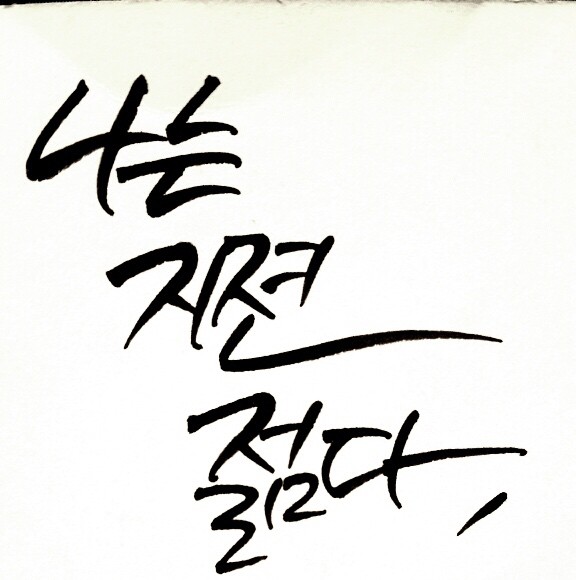 나는
지젼
젊다,